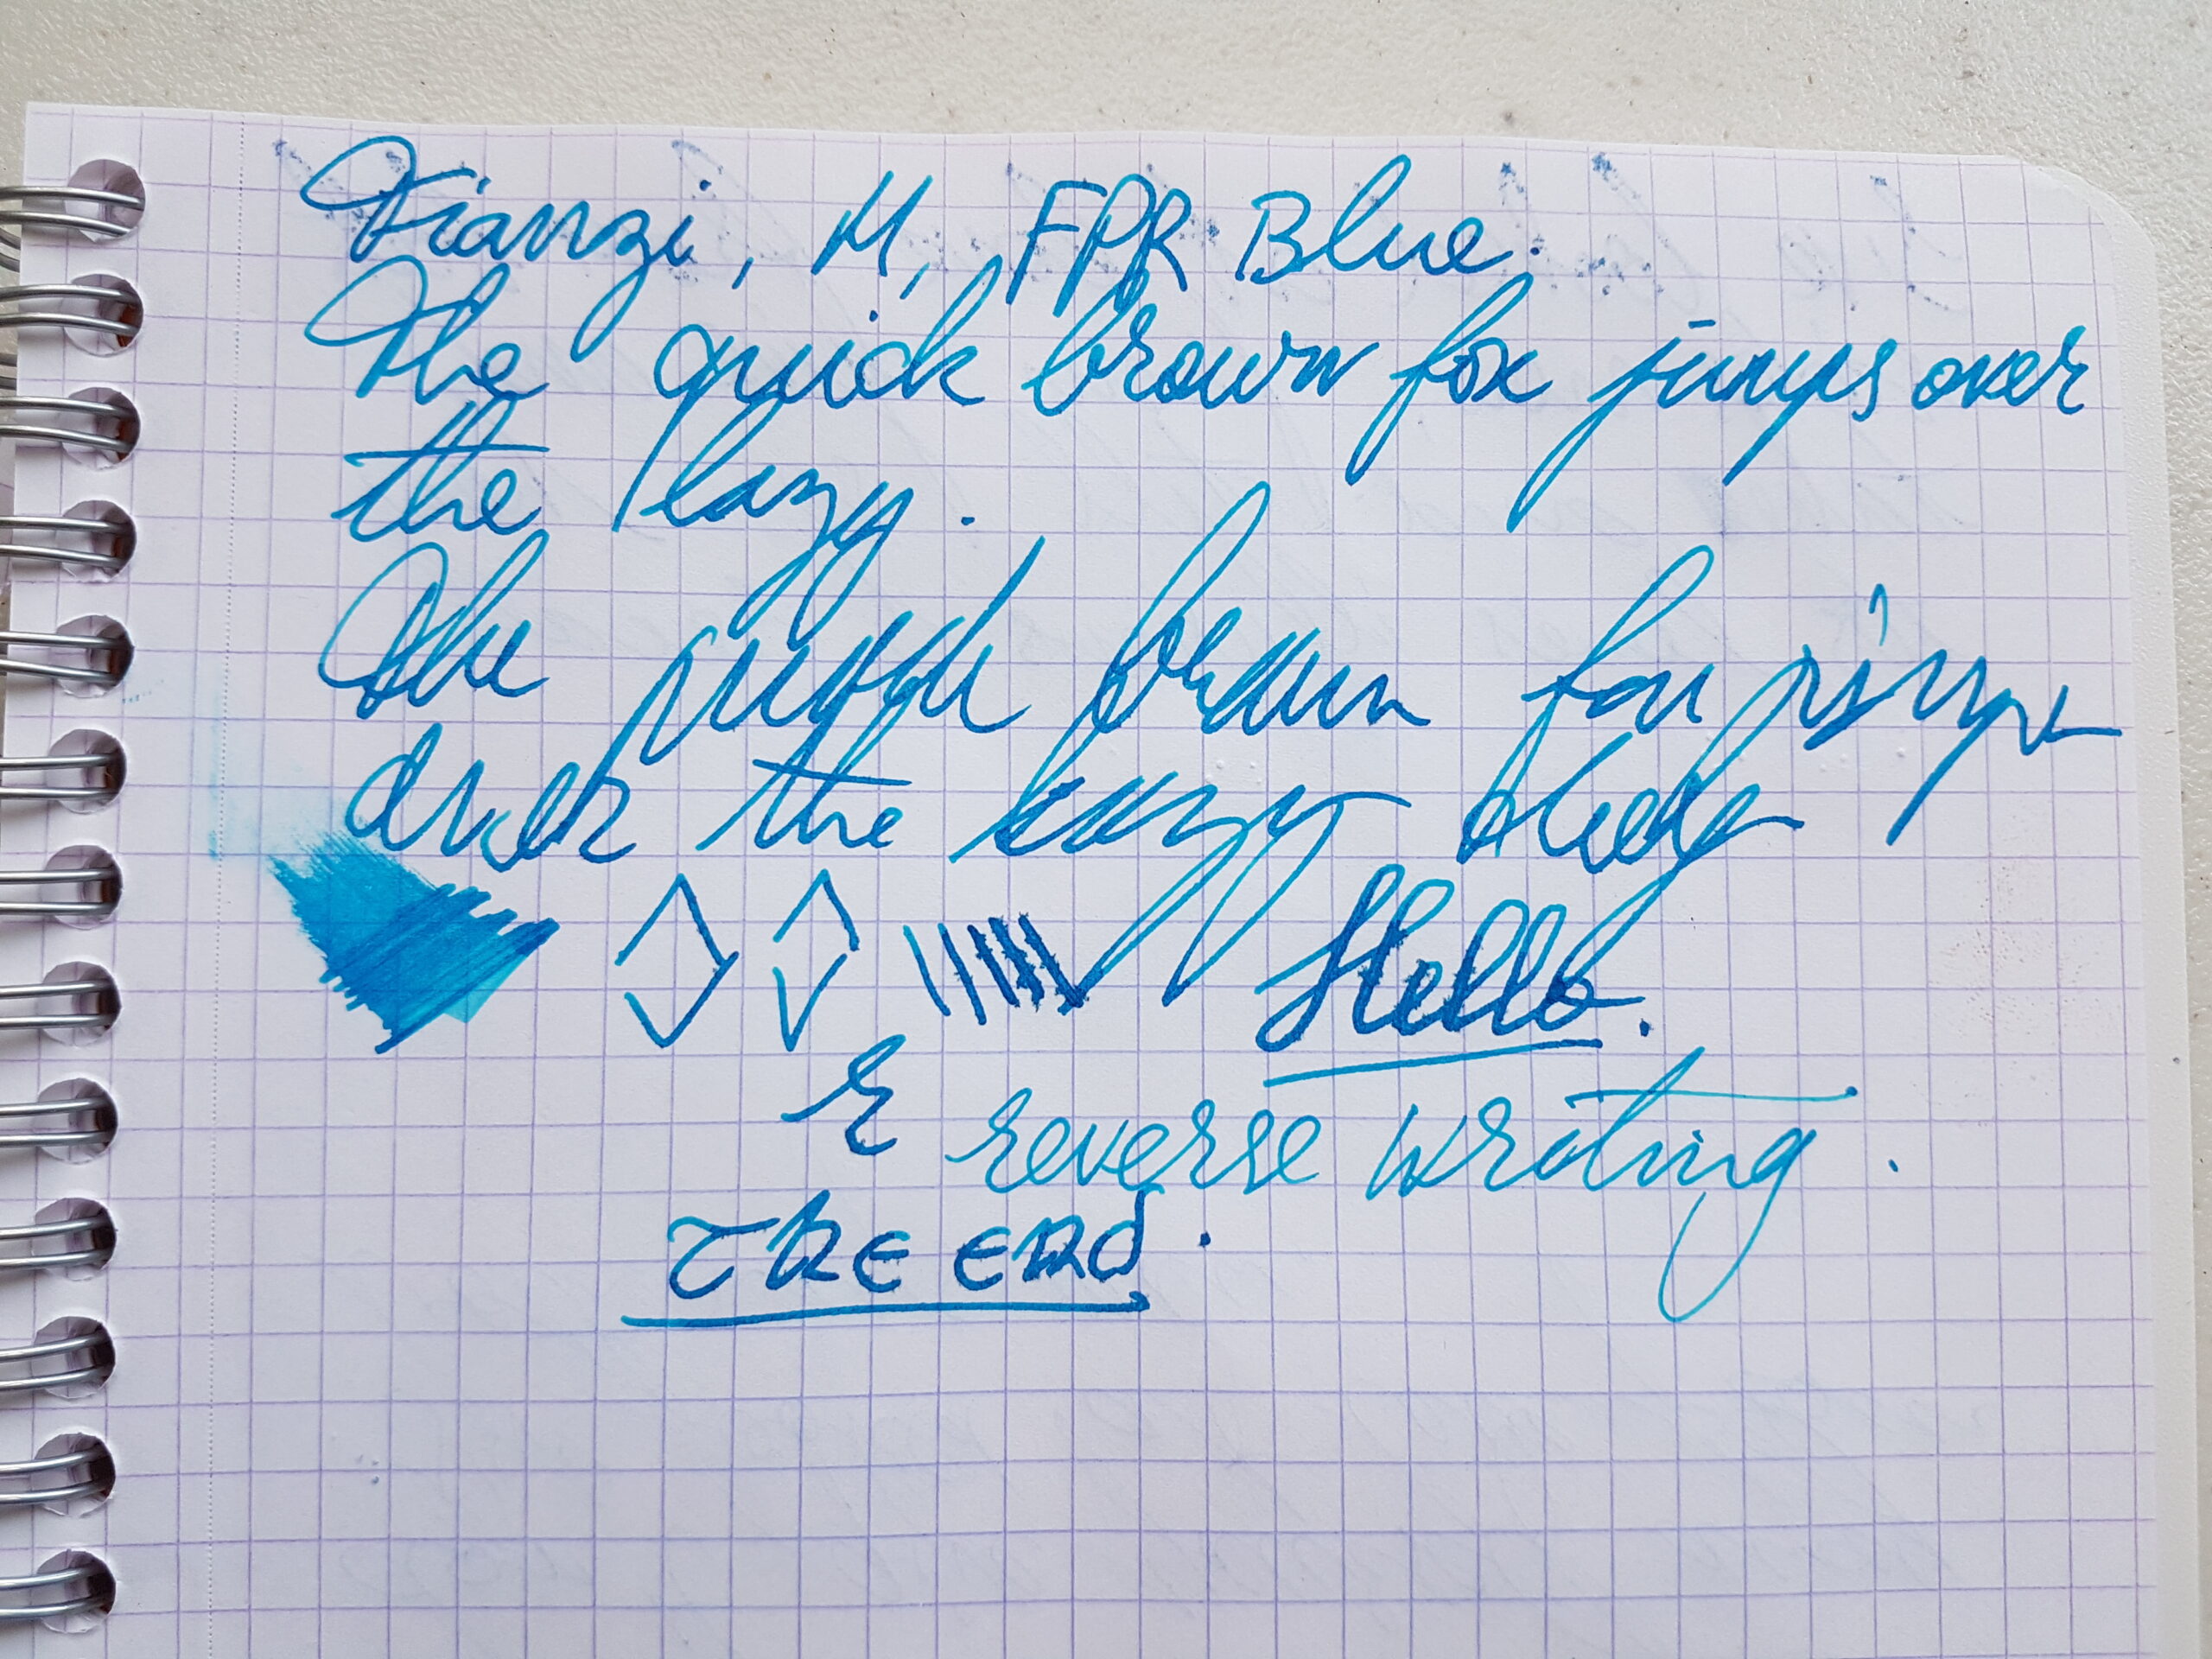 Tianzi, M, FPR Blue.
The quick brown fox jumps over
the lazy.
The quick brown fox jumps
over the lazy
Hello.
& reverse writing.
The end.